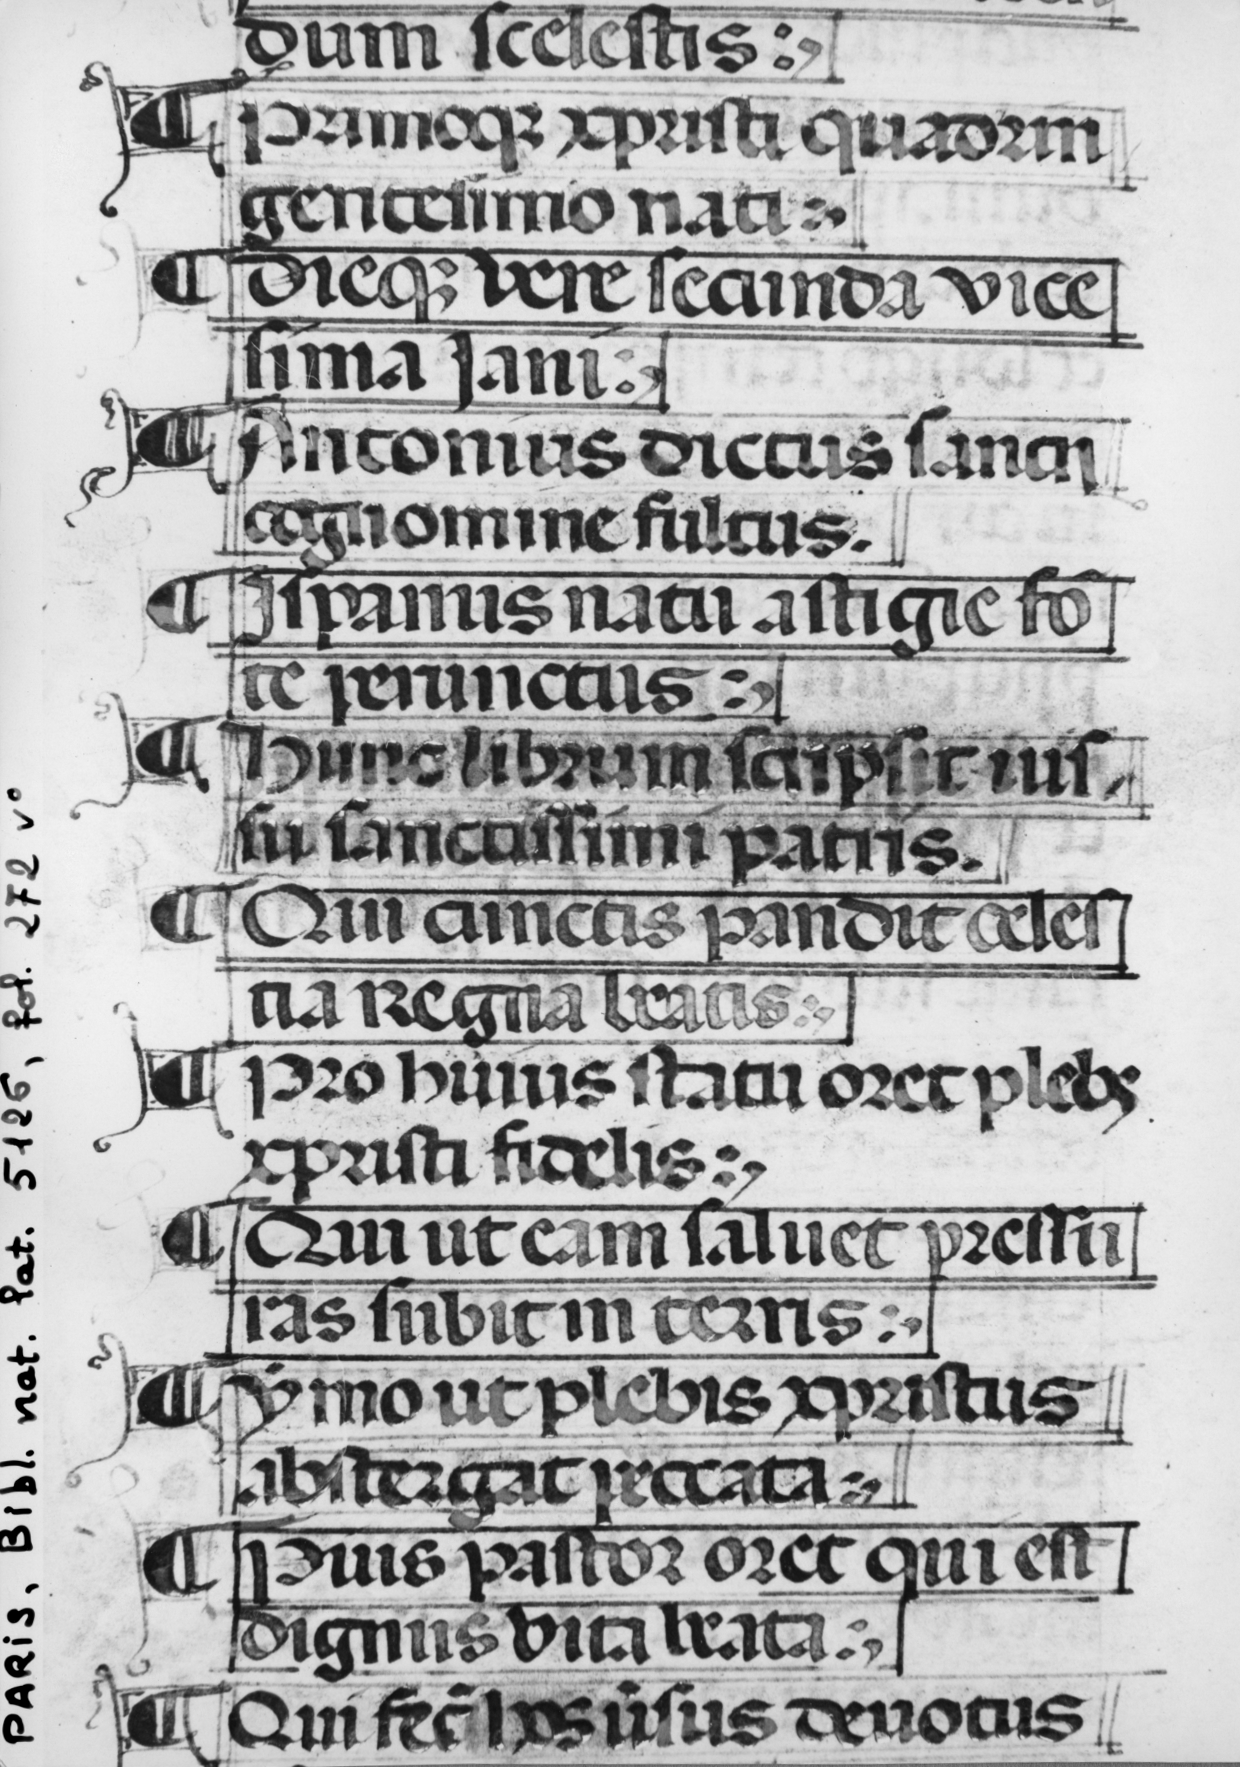 dum scelestis:,
¶ Primoqꝫ xpristi quadrin
gentesimo nati:,
¶ dieqꝫ vere secunda vice
sima Jani:,
¶ Antonius dictus sancij
cognomine fultus.
¶ Jspanus natu astigie fō
te perunctus:,
¶ Hunc librum scripsit ius
su sanctissimi patris.
¶ Qui cunctis pandit celes
tia Regna beatis:,
¶ Pro huius statu oret plebs
xpristi fidelis:,
¶ Qui ut eam saluet pressu
ras subit in terris:,
¶ ẏmo ut plebis xpristus
abstergat peccata:,
¶ Pius pastor oret qui est
dignus vita beata:,
¶ Qui fec̄ hos ūsus deuotus
PARIS, Bibl. nat. lat. 5126, fol. 272 v°